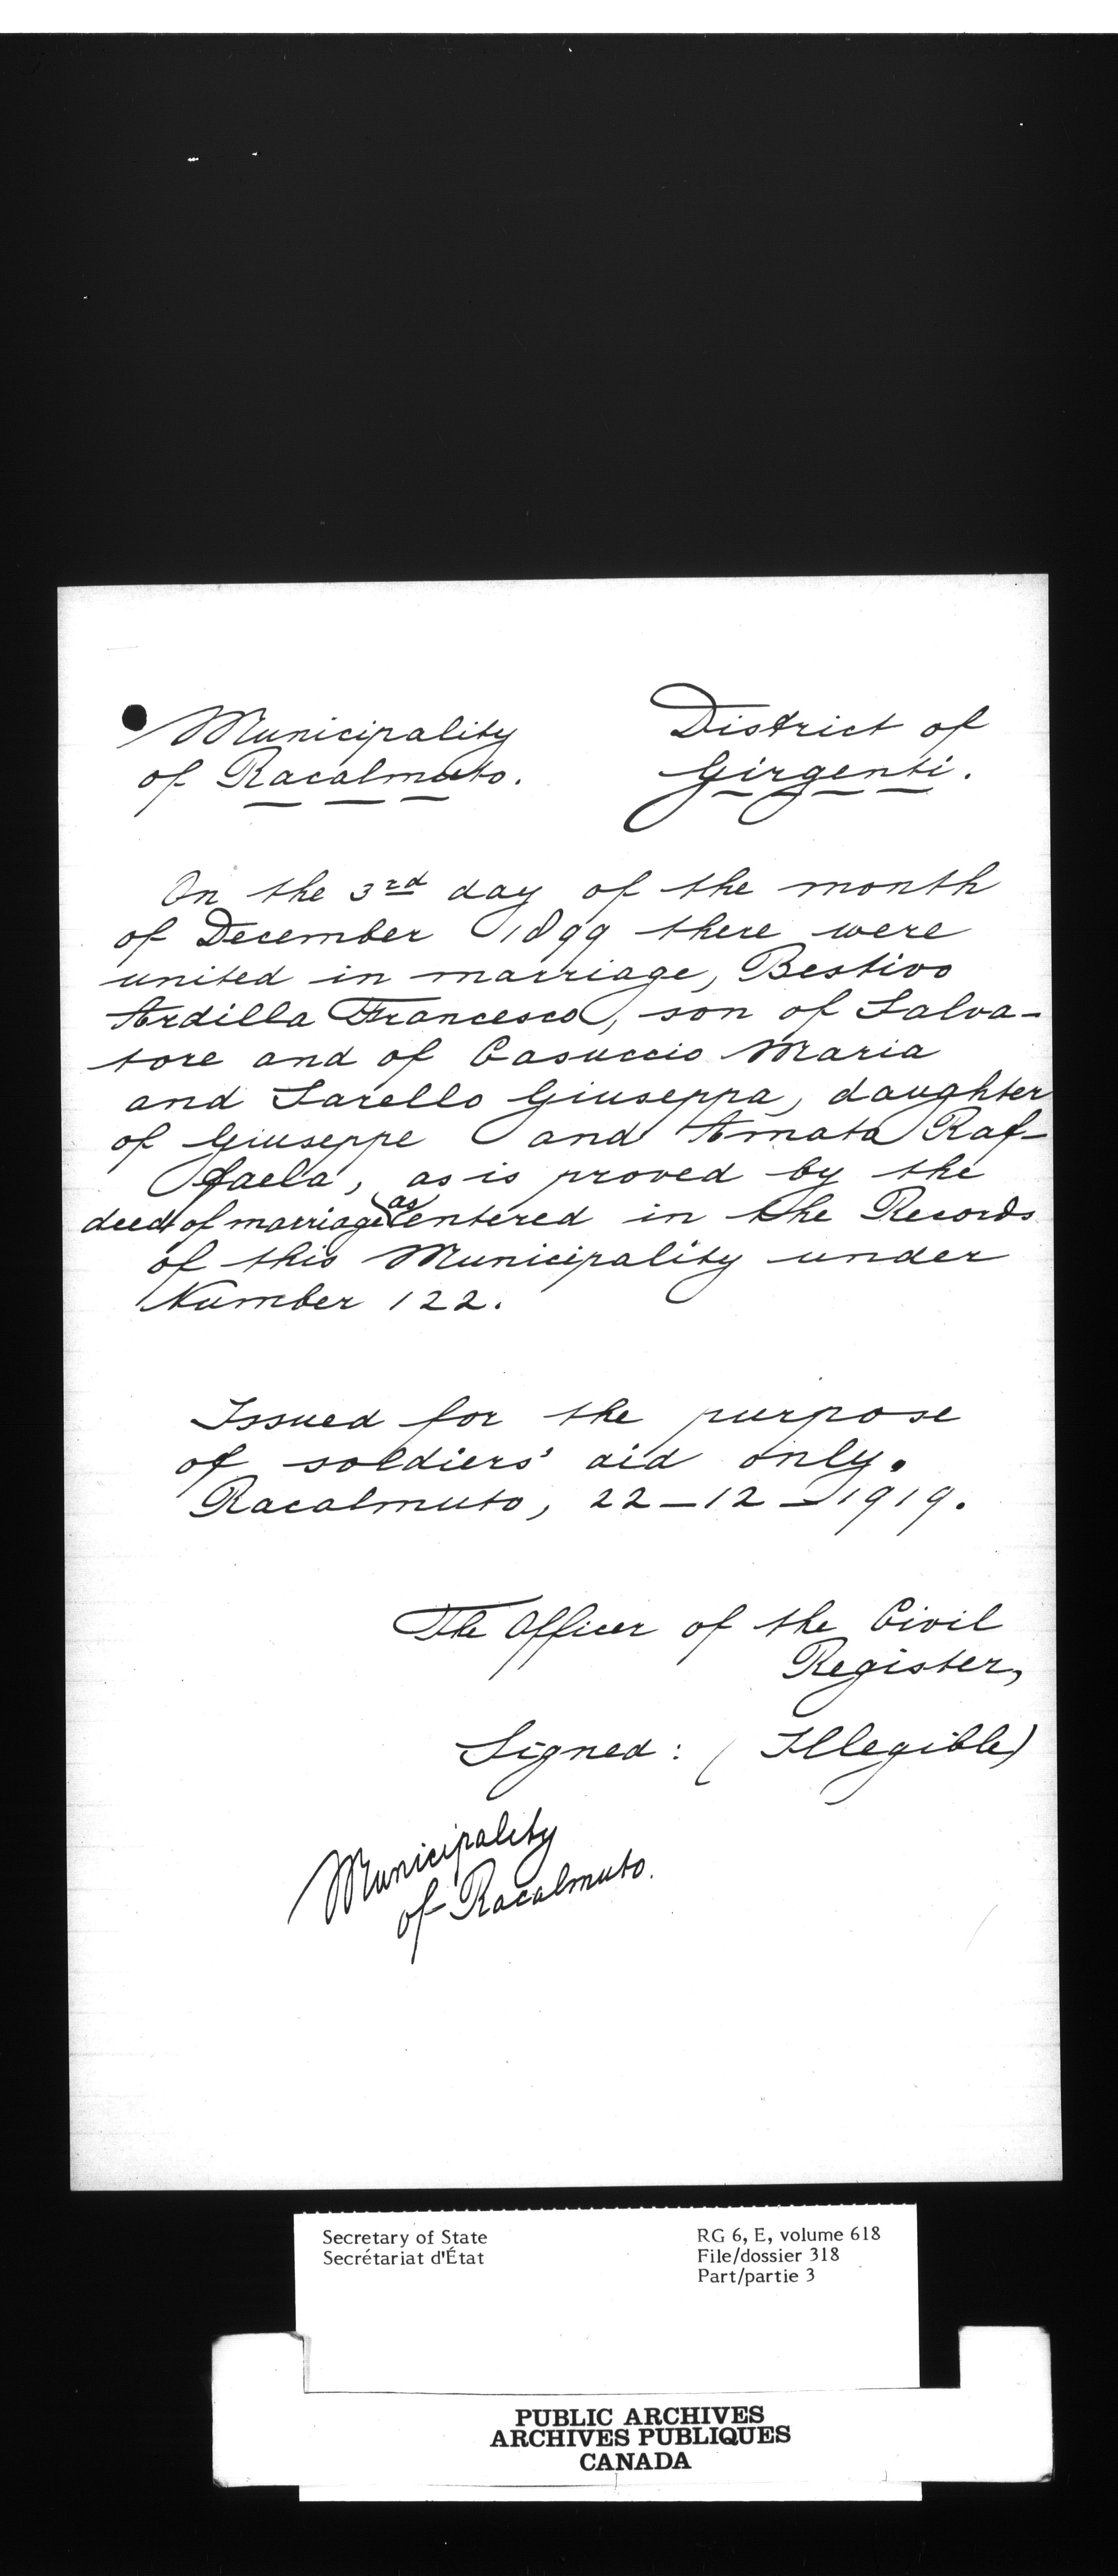 Municipality
of Racalmuto.
District of
Girgenti.
On the 3rd day of the month
of December 1899 there were
united in marriage, Bestivo
Ardilla Francesco, son of Salva-
tore and of Casuccio Maria
and Sarello Giuseppa, daughter
of Giuseppe and Amata Raf-
faela, as is proved by the
deed of marriage as entered in the Records
of this Municipality under
Number 122.
Issued for the purpose
of soldiers' aid only.
Racalmuto, 22-12-1919.
The Officer of the Civil
Register,
Signed: (Illegible)
Municipality
of Racalmuto.
Secretary of State
Secrétariat d'État
RG 6, E, volume 618
File/dossier 318
Part/partie 3
PUBLIC ARCHIVES
ARCHIVES PUBLIQUES
CANADA